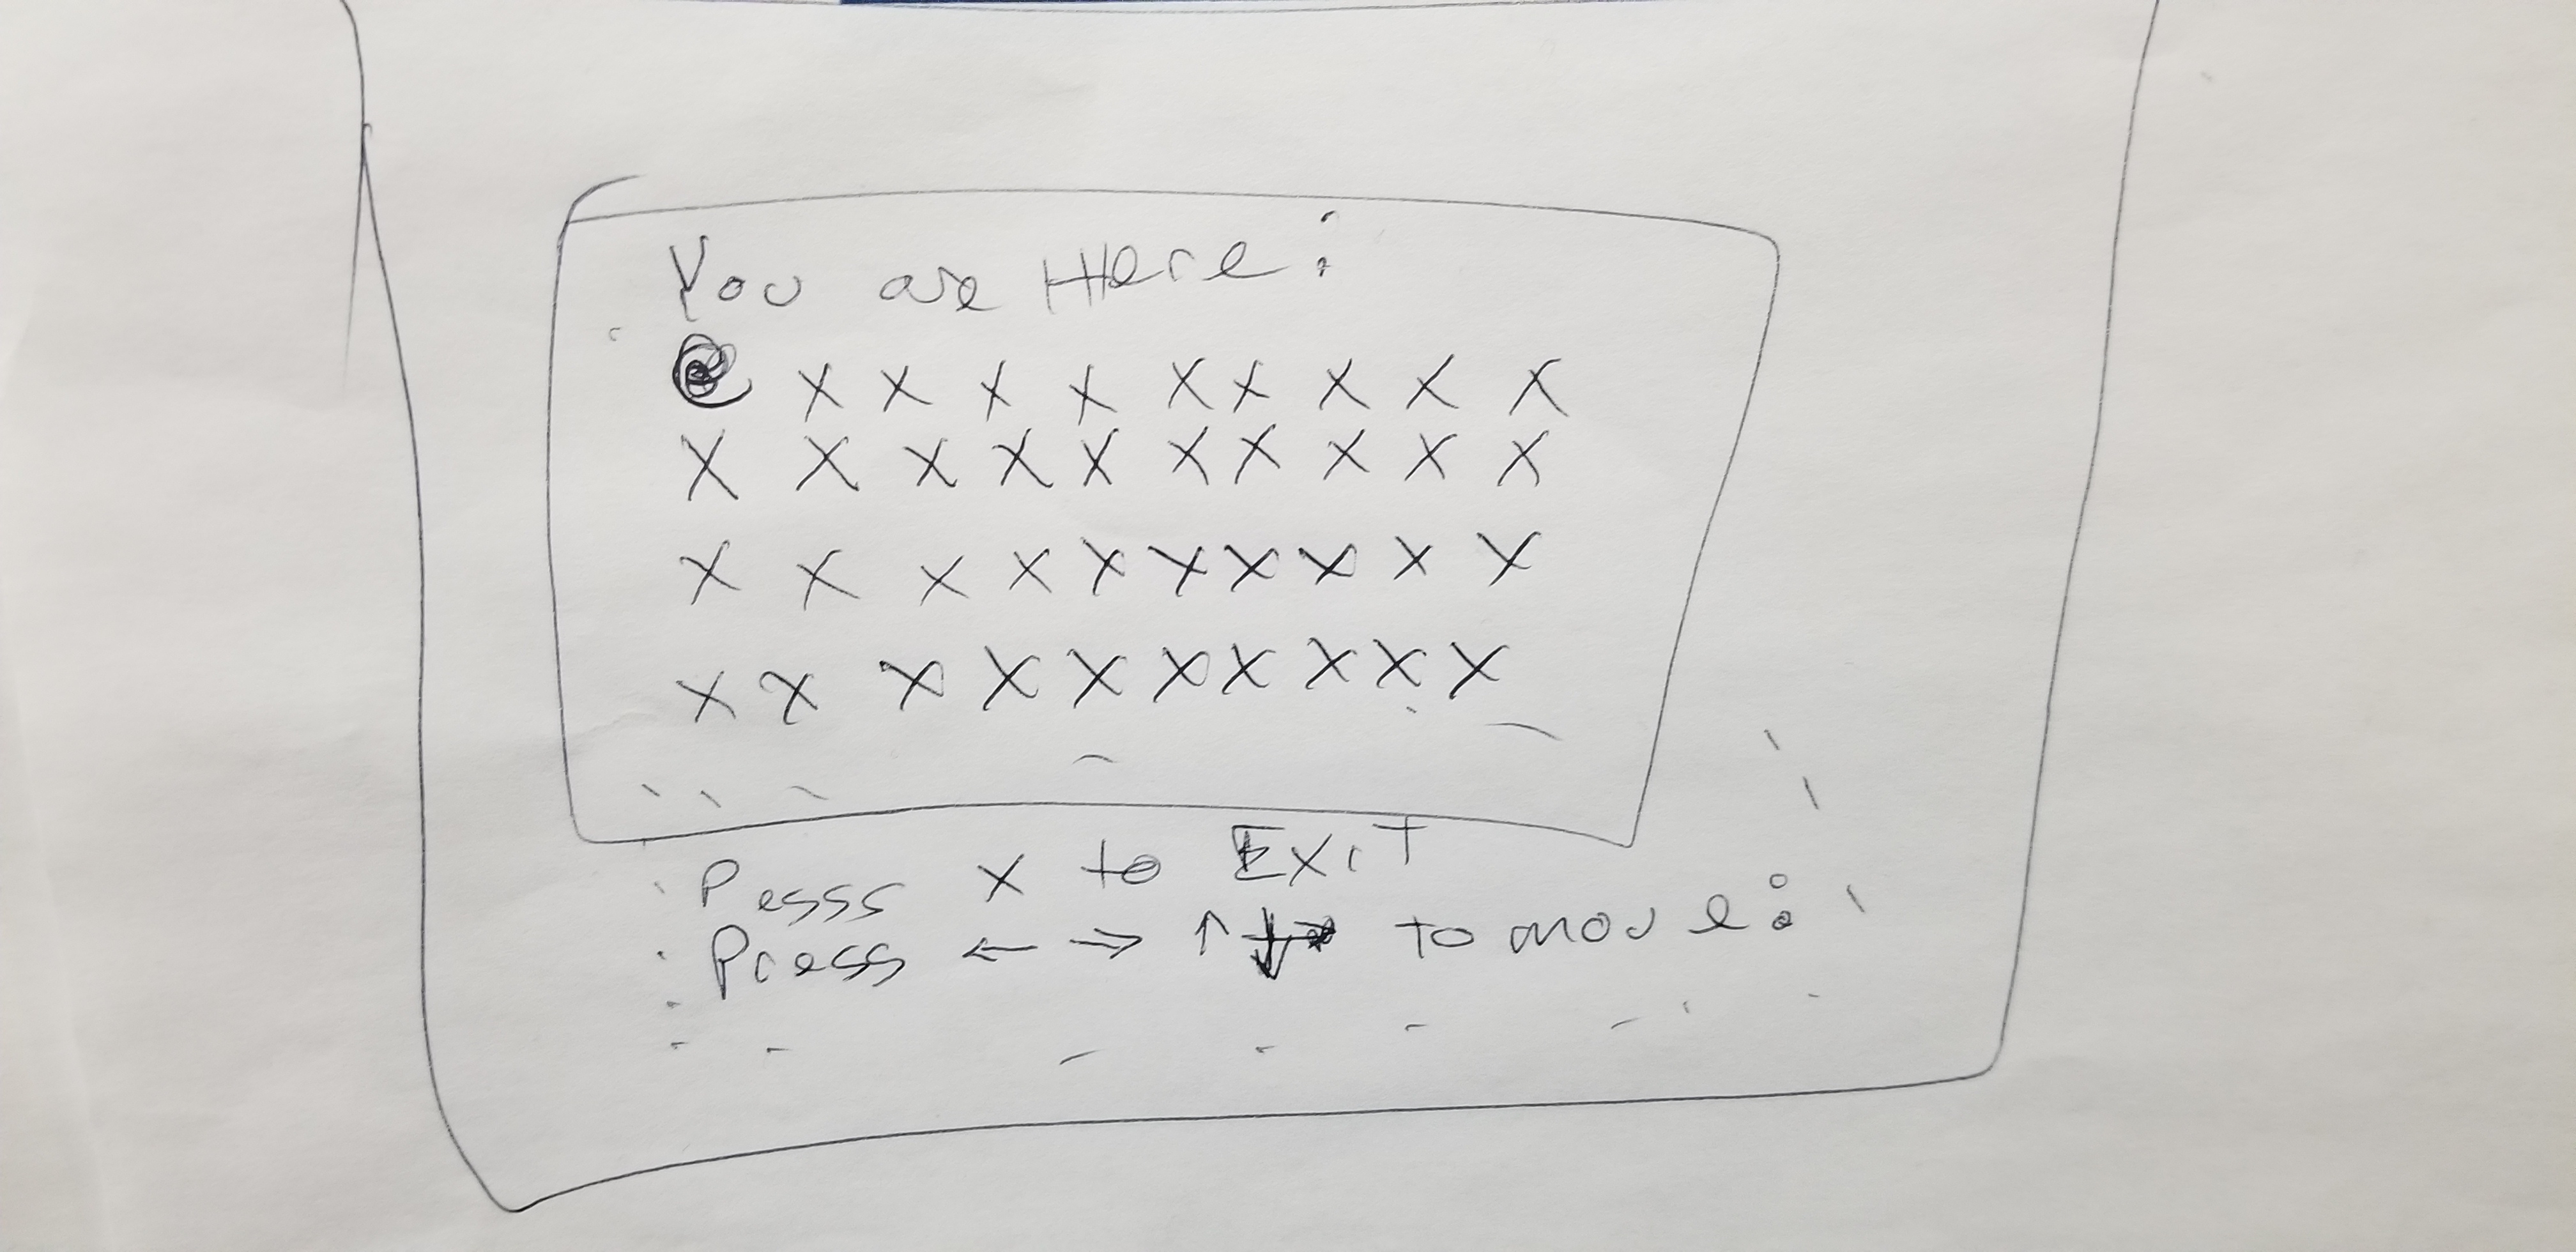 You are Here:
@ X X X X X X X X X
X X X X X X X X X X
X X X X X X X X X X
X X X X X X X X X X
Pesss X to ExiT
Press ← → ↑ ↓ to move: